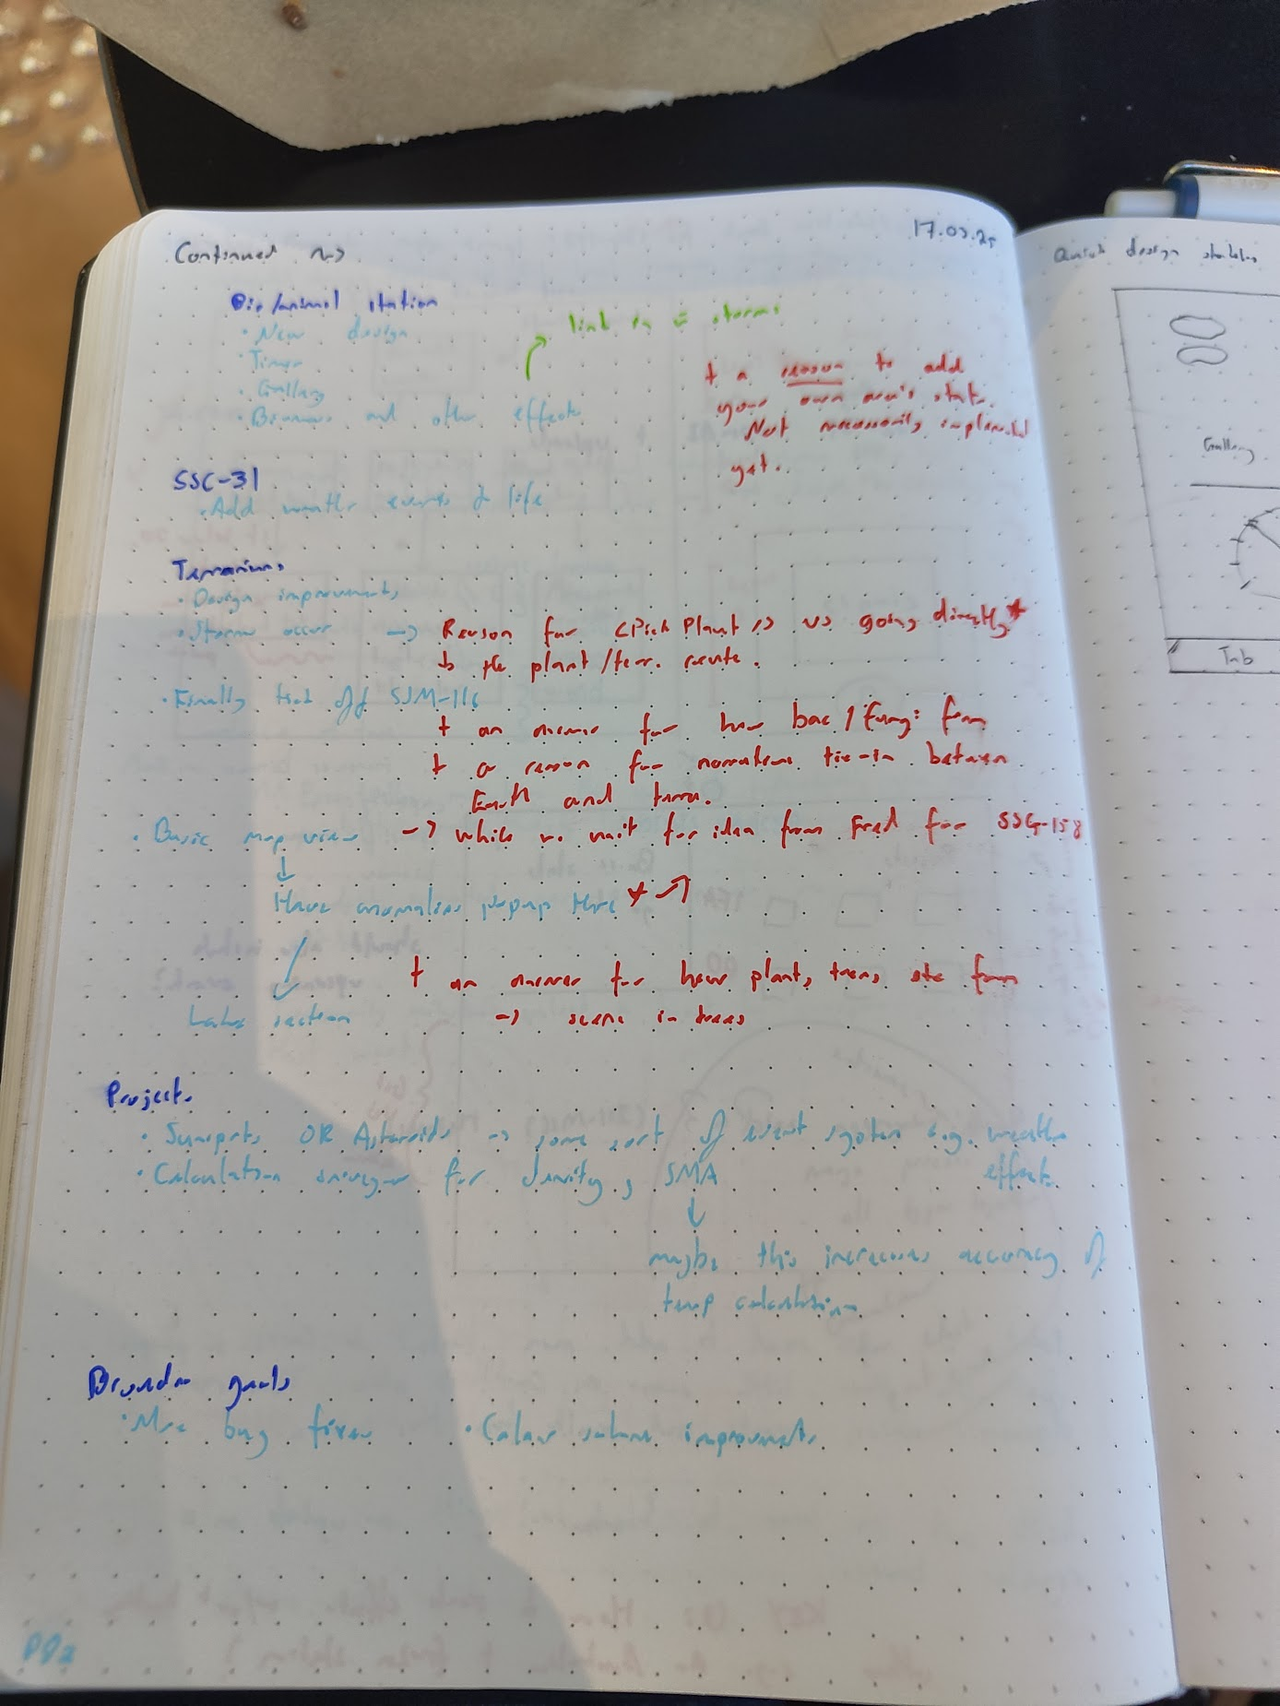 Continued ~>
17.03.25
Bio/animal station
• New design
• Timer
• Gallery
• Biomass and other effects
link in = storms
+ a reason to add
your own area's stats.
Not necessarily implemented
yet.
SSC-31
• Add weather events & life
Terrariums
• Design improvements
• Storms occur -> Reason for <Pick Plant /> vs going directly *
to the plant/terr. route.
• Finally tick off SJM-116
+ an answer for how bac/fungi form
+ a reason for narrative tie-in between
Earth and terra.
• Basic map view -> while we wait for idea from Fred for SSG-158
↓
Have anomalies popup here * ↗
+ an answer for how plants, trees, etc form
Labs section -> scene in trees
Projects
• Sunspots OR Asteroids -> some sort of event system e.g. weather
effects
• Calculation for density, SMA
↓
maybe this increases accuracy of
temp calculations
Broader goals
• More bug fixes • Colour scheme improvements
PP2
Quick design sketches
Gallery
Tab